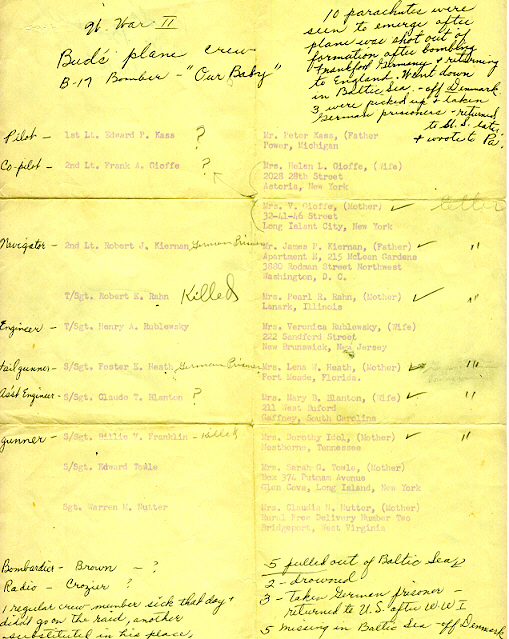 W. War II
Bud's plane crew
B-17 Bomber - "Our Baby"
10 parachutes were
seen to emerge after
plane was shot out of
formation after bombing
Frankfort Germany & returning
to England. Went down
in Baltic Sea - off Denmark.
3 were picked up & taken
German prisoners - returned
to U.S. late,
& wrote to Pa.
Pilot - 1st Lt. Edward P. Kasa ? Mr. Peter Kasa, (Father
Power, Michigan
Co-pilot - 2nd Lt. Frank A. Gioffe ? Mrs. Helen L. Gioffe, (Wife)
2028 28th Street
Astoria, New York
Mrs. V. Gioffe, (Mother) ✓ letter
32-41-46 Street
Long Island City, New York
Navigator - 2nd Lt. Robert J. Kiernan German Prisoner Mr. James P. Kiernan, (Father) ✓ "
Apartment E, 215 McLean Gardens
3880 Rodman Street Northwest
Washington, D. C.
T/Sgt. Robert E. Rahn Killed Mrs. Pearl R. Rahn, (Mother) ✓ "
Lanark, Illinois
Engineer - T/Sgt. Henry A. Rublewsky Mrs. Veronica Rublewsky, (Wife)
222 Sandford Street
New Brunswick, New Jersey
tail gunner - S/Sgt. Foster E. Heath German Prisoner Mrs. Lena M. Heath, (Mother) ✓ "
Fort Meade, Florida.
Ass't Engineer - S/Sgt. Claude T. Blanton ? Mrs. Mary B. Blanton, (Wife) ✓ "
211 West Buford
Gaffney, South Carolina
gunner - S/Sgt. Billie V. Franklin - Killed Mrs. Dorothy Idol, (Mother) ✓ "
Tennessee
S/Sgt. Edward Towle Mrs. Sarah G. Towle, (Mother)
Box 374 Putnam Avenue
Glen Cove, Long Island, New York
Sgt. Warren M. Nutter Mrs. Claudia N. Nutter, (Mother)
Rural Free Delivery Number Two
Bridgeport, West Virginia
Bombardier - Brown - ?
Radio - Crozier ?
1 regular crew member sick that day &
didn't go on the raid, another
substituted in his place,
5 pulled out of Baltic Sea
2 - drowned
3 - taken German prisoner -
returned to U.S. after W W I
5 missing in Baltic Sea - off Denmark